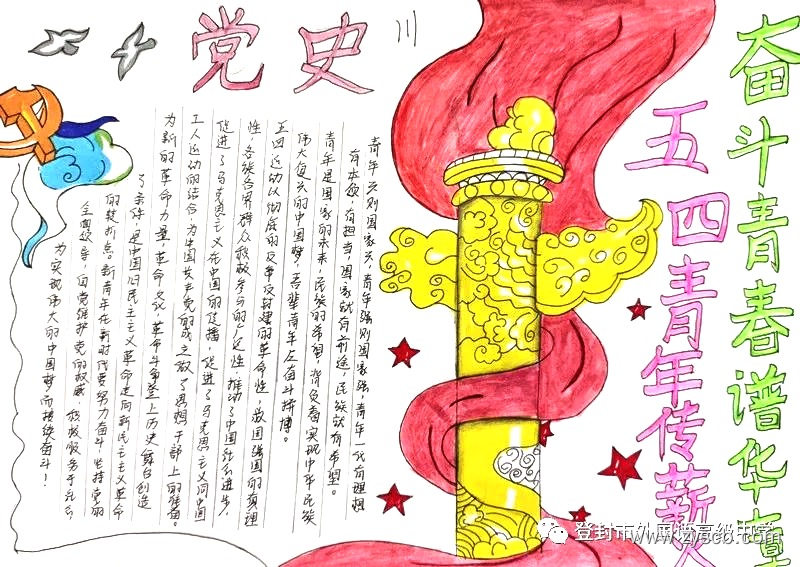 党史
奋斗青春谱华章
五四青年传薪火
青年兴则国家兴,青年强则国家强,青年一代有理想
有本领,有担当,国家就有前途,民族就有希望。
青年是国家的未来,民族的希望,肩负着实现中华民族
伟大复兴的中国梦,吾辈青年应奋斗拼搏。
五四运动以彻底的反帝反封建的革命性,救国强国的真理
性,各族各界群众积极参与的广泛性,推动了中国社会进步,
促进了马克思主义在中国的传播,促进了马克思主义同中国
工人运动的结合,为中国共产党的成立做了思想干部上的准备。
为新的革命力量,革命文化,革命斗争登上历史舞台创造
了条件,是中国旧民主主义革命走向新民主主义革命
的转折点。新青年在新时代要努力奋斗,坚持党的
全面领导,自觉维护党的权威,积极服务于社会,
为实现伟大的中国梦而持续奋斗!
登封市外国语高级中学
www.zyscb.com